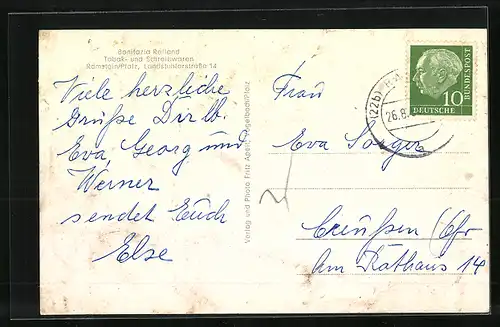 Bonifazia Rolland
Tabak- und Schreibwaren
Ramstein/Pfalz, Landstuhlerstraße 14
Viele herzliche
Grüße Dir lb.
Eva, Georg und
Werner
sendet Euch
Else
Verlag und Photo Fritz Agent,
Frau
Eva Sorger
Creußen (Ofr
Am Rathaus 14
(22b)
26.8.
10
DEUTSCHE
BUNDESPOST